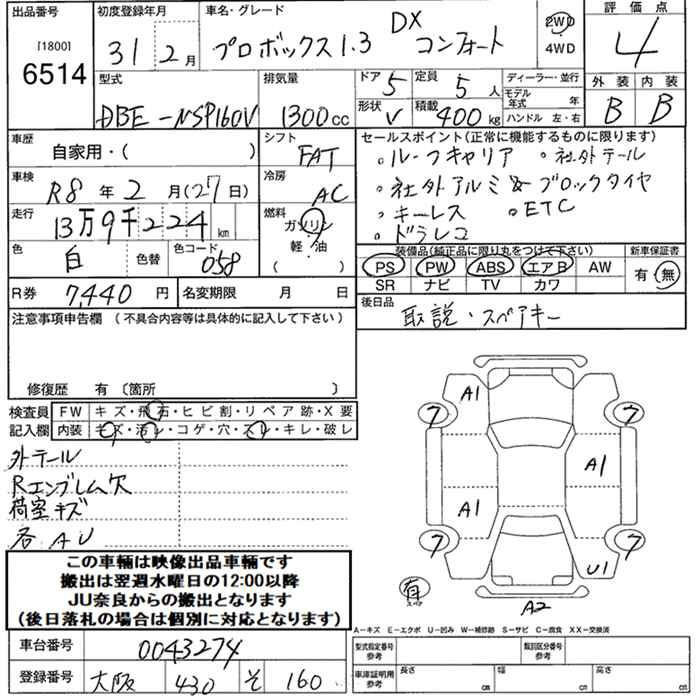 出品番号 初度登録年月 車名・グレード 評価点
[1800] 31年2月 プロボックス1.3 DX コンフォート 2WD 4
6514 4WD
型式 排気量 ドア 5 定員 5人 ディーラー・並行 外装 内装
モデル年式 年
DBE-NSP160V 1300cc 形状 V 積載 400kg ハンドル 左・右 B B
車歴 シフト セールスポイント(正常に機能するものに限ります)
自家用・( ) FAT ・ルーフキャリア ・社外テール
車検 R8年2月(27日) 冷房 AC ・社外アルミ&ブロックタイヤ
走行 13万9千224km 燃料 ガソリン ・キーレス ・ETC
軽・油 ・ドラレコ
色 白 色替 色コード 058 ( ) 装備品(純正品に限り丸をつけて下さい) 新車保証書
PS PW ABS エアB AW 有・無
R券 7,440円 名変期限 月 日 SR ナビ TV カワ
注意事項申告欄(不具合内容等は具体的に記入して下さい) 後日品 取説・スペアキー
修復歴 有〔箇所 〕
検査員 FW キズ・飛石・ヒビ割・リペア跡・X要
記入欄 内装 キズ・汚レ・コゲ・穴・スレ・キレ・破レ
外テール
Rエンブレム欠
荷室キズ
各AU
A1
7 7
A1
A1
7 7
U1
有
スペア
A2
この車輌は映像出品車輌です
搬出は翌週水曜日の12:00以降
JU奈良からの搬出となります
(後日落札の場合は個別に対応となります)
A-キズ E-エクボ U-凹み W-補修跡 S-サビ C-腐食 XX-交換済
車台番号 0043274 型式指定番号 参考 類別区分番号 参考
登録番号 大阪 430 そ 160 車庫証明用 参考 長さ cm 幅 cm 高さ cm